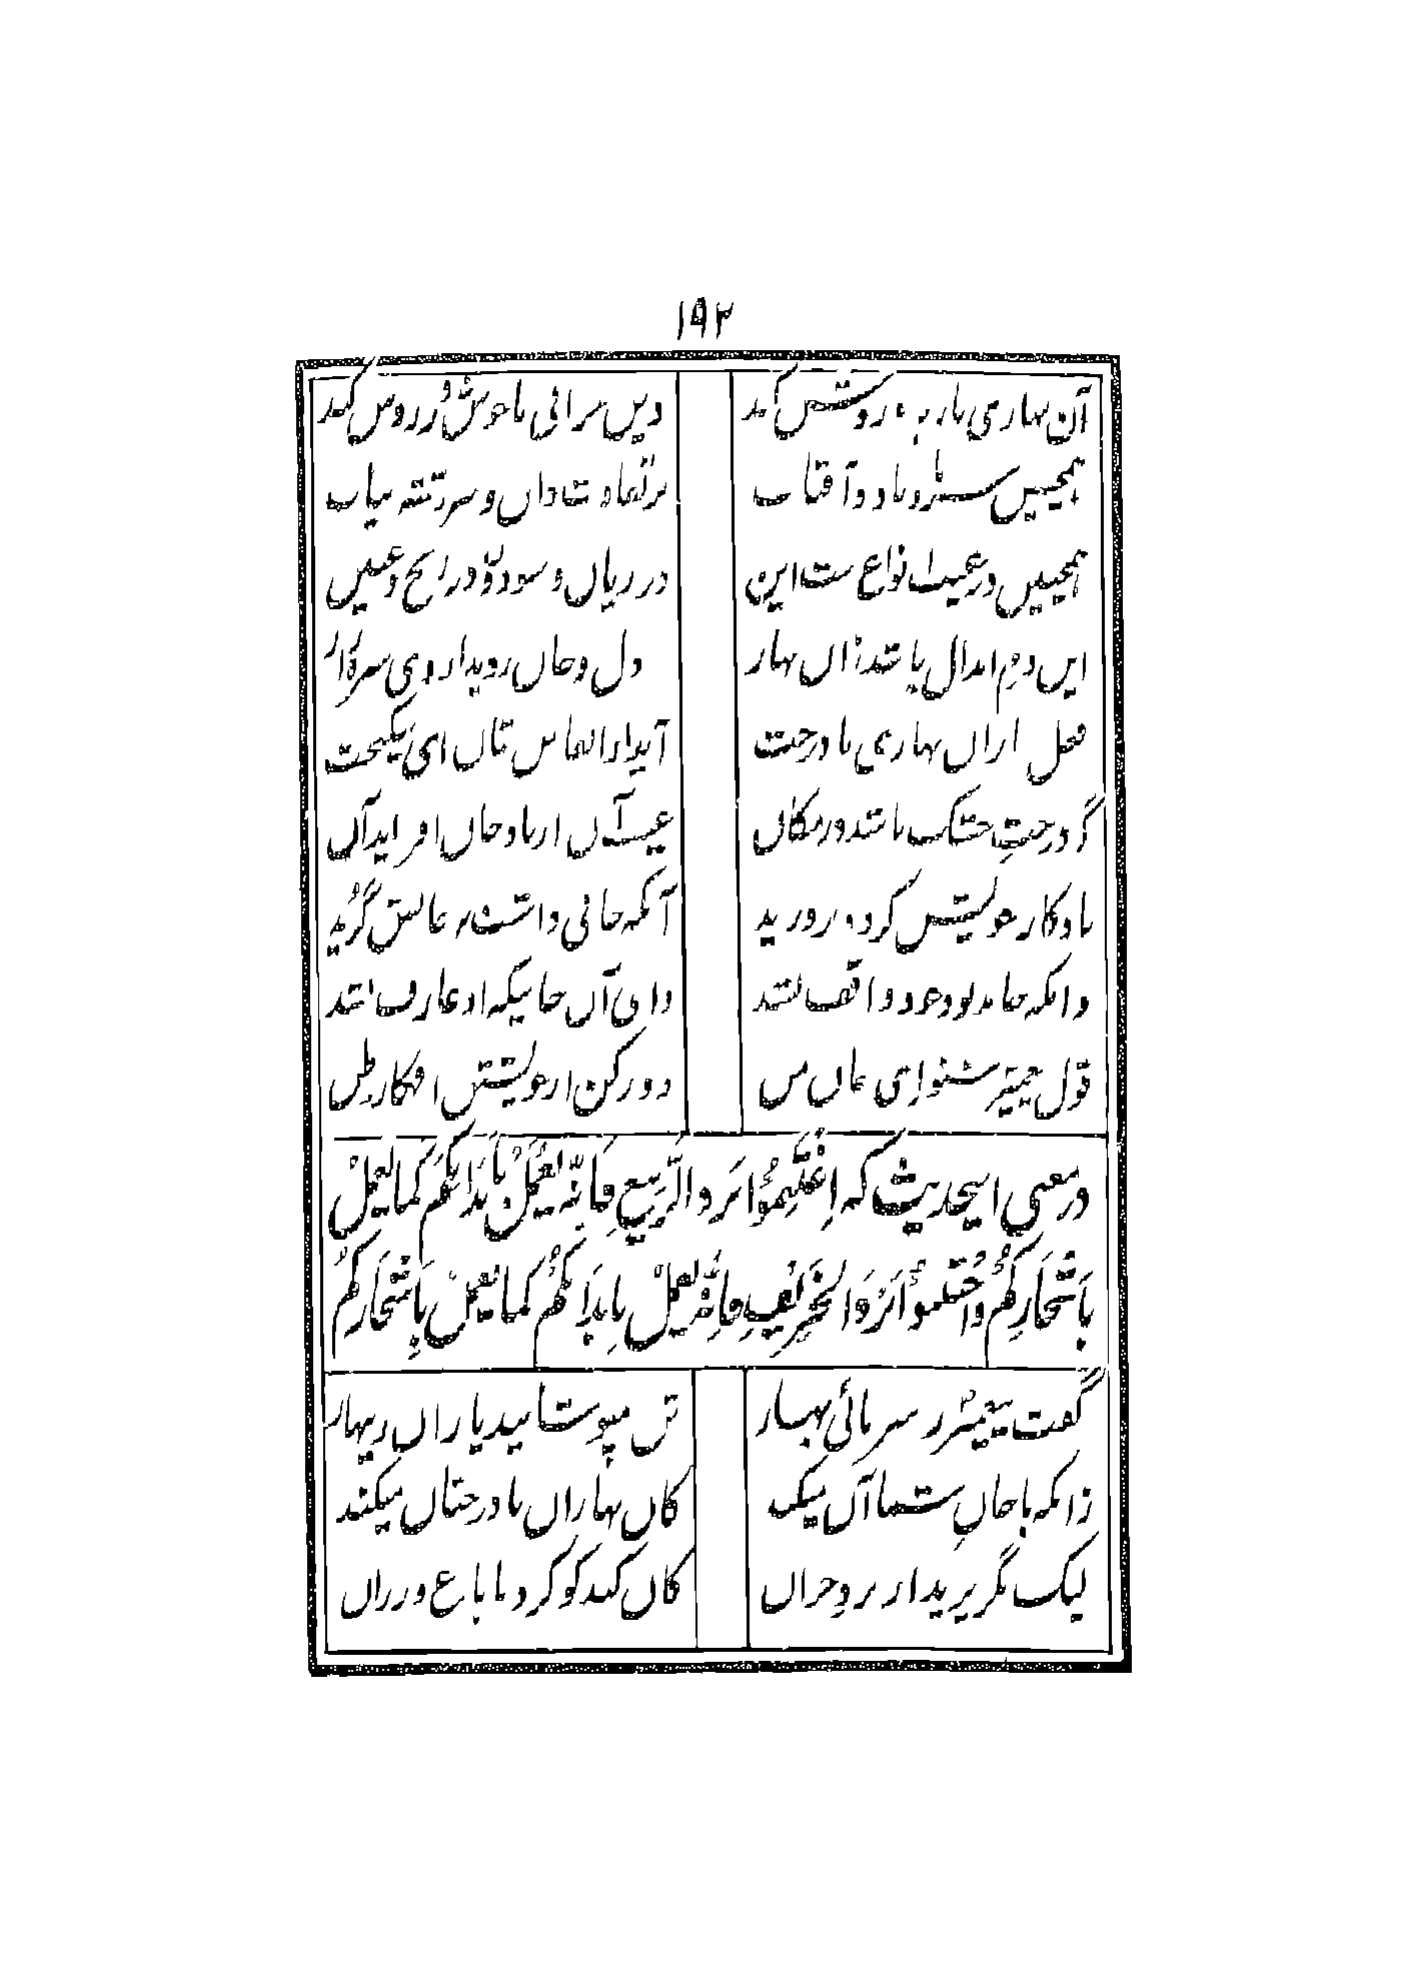 ۱۹۲
آن بهاری ناز پروردش کند وین خزانی ناخوش و زردش کند
همچنین سرد و باد و آفتاب بر تفاوت دان و سررشته بیاب
همچنین در غیب انواع ست این در زیان و سود و در ربح و غبین
این دمِ ابدال باشد زان بهار دل و جان روید از وی سبزه‌زار
فعل باران بهاری با درخت آید از انفاس شان ای نیکبخت
گر درختِ خشک باشد در مکان عیب آن از باد جان افزا مدان
باد کار خویشتن کرد و بروزید آنکه جانی داشت بر جانش گزید
وانکه جامد بود خود واقف نشد وای آن جانیکه او عارف نشد
قول پیغمبر شنو ای جان من دور کن از خویشتن افکار ظن
در معنی اینحدیث که اِغْتَنِمُوْا بَرْدَ الرَّبِیعِ فَاِنَّهُ یَعْمَلُ بِاَبْدَانِکُمْ کَمَا یَعْمَلُ
بِاَشْجَارِکُمْ وَاجْتَنِبُوْا بَرْدَ الْخَرِیْفِ فَاِنَّهُ یَعْمَلُ بِاَبْدَانِکُمْ کَمَا یَعْمَلُ بِاَشْجَارِکُمْ
گفت پیغمبر ز سرمائی بهار تن مپوشانید یاران زینهار
زانکه با جانِ شما آن میکند کان بهاران با درختان میکند
لیک بگریزید از برد خزان کان کند کو کرد با باغ و رزان